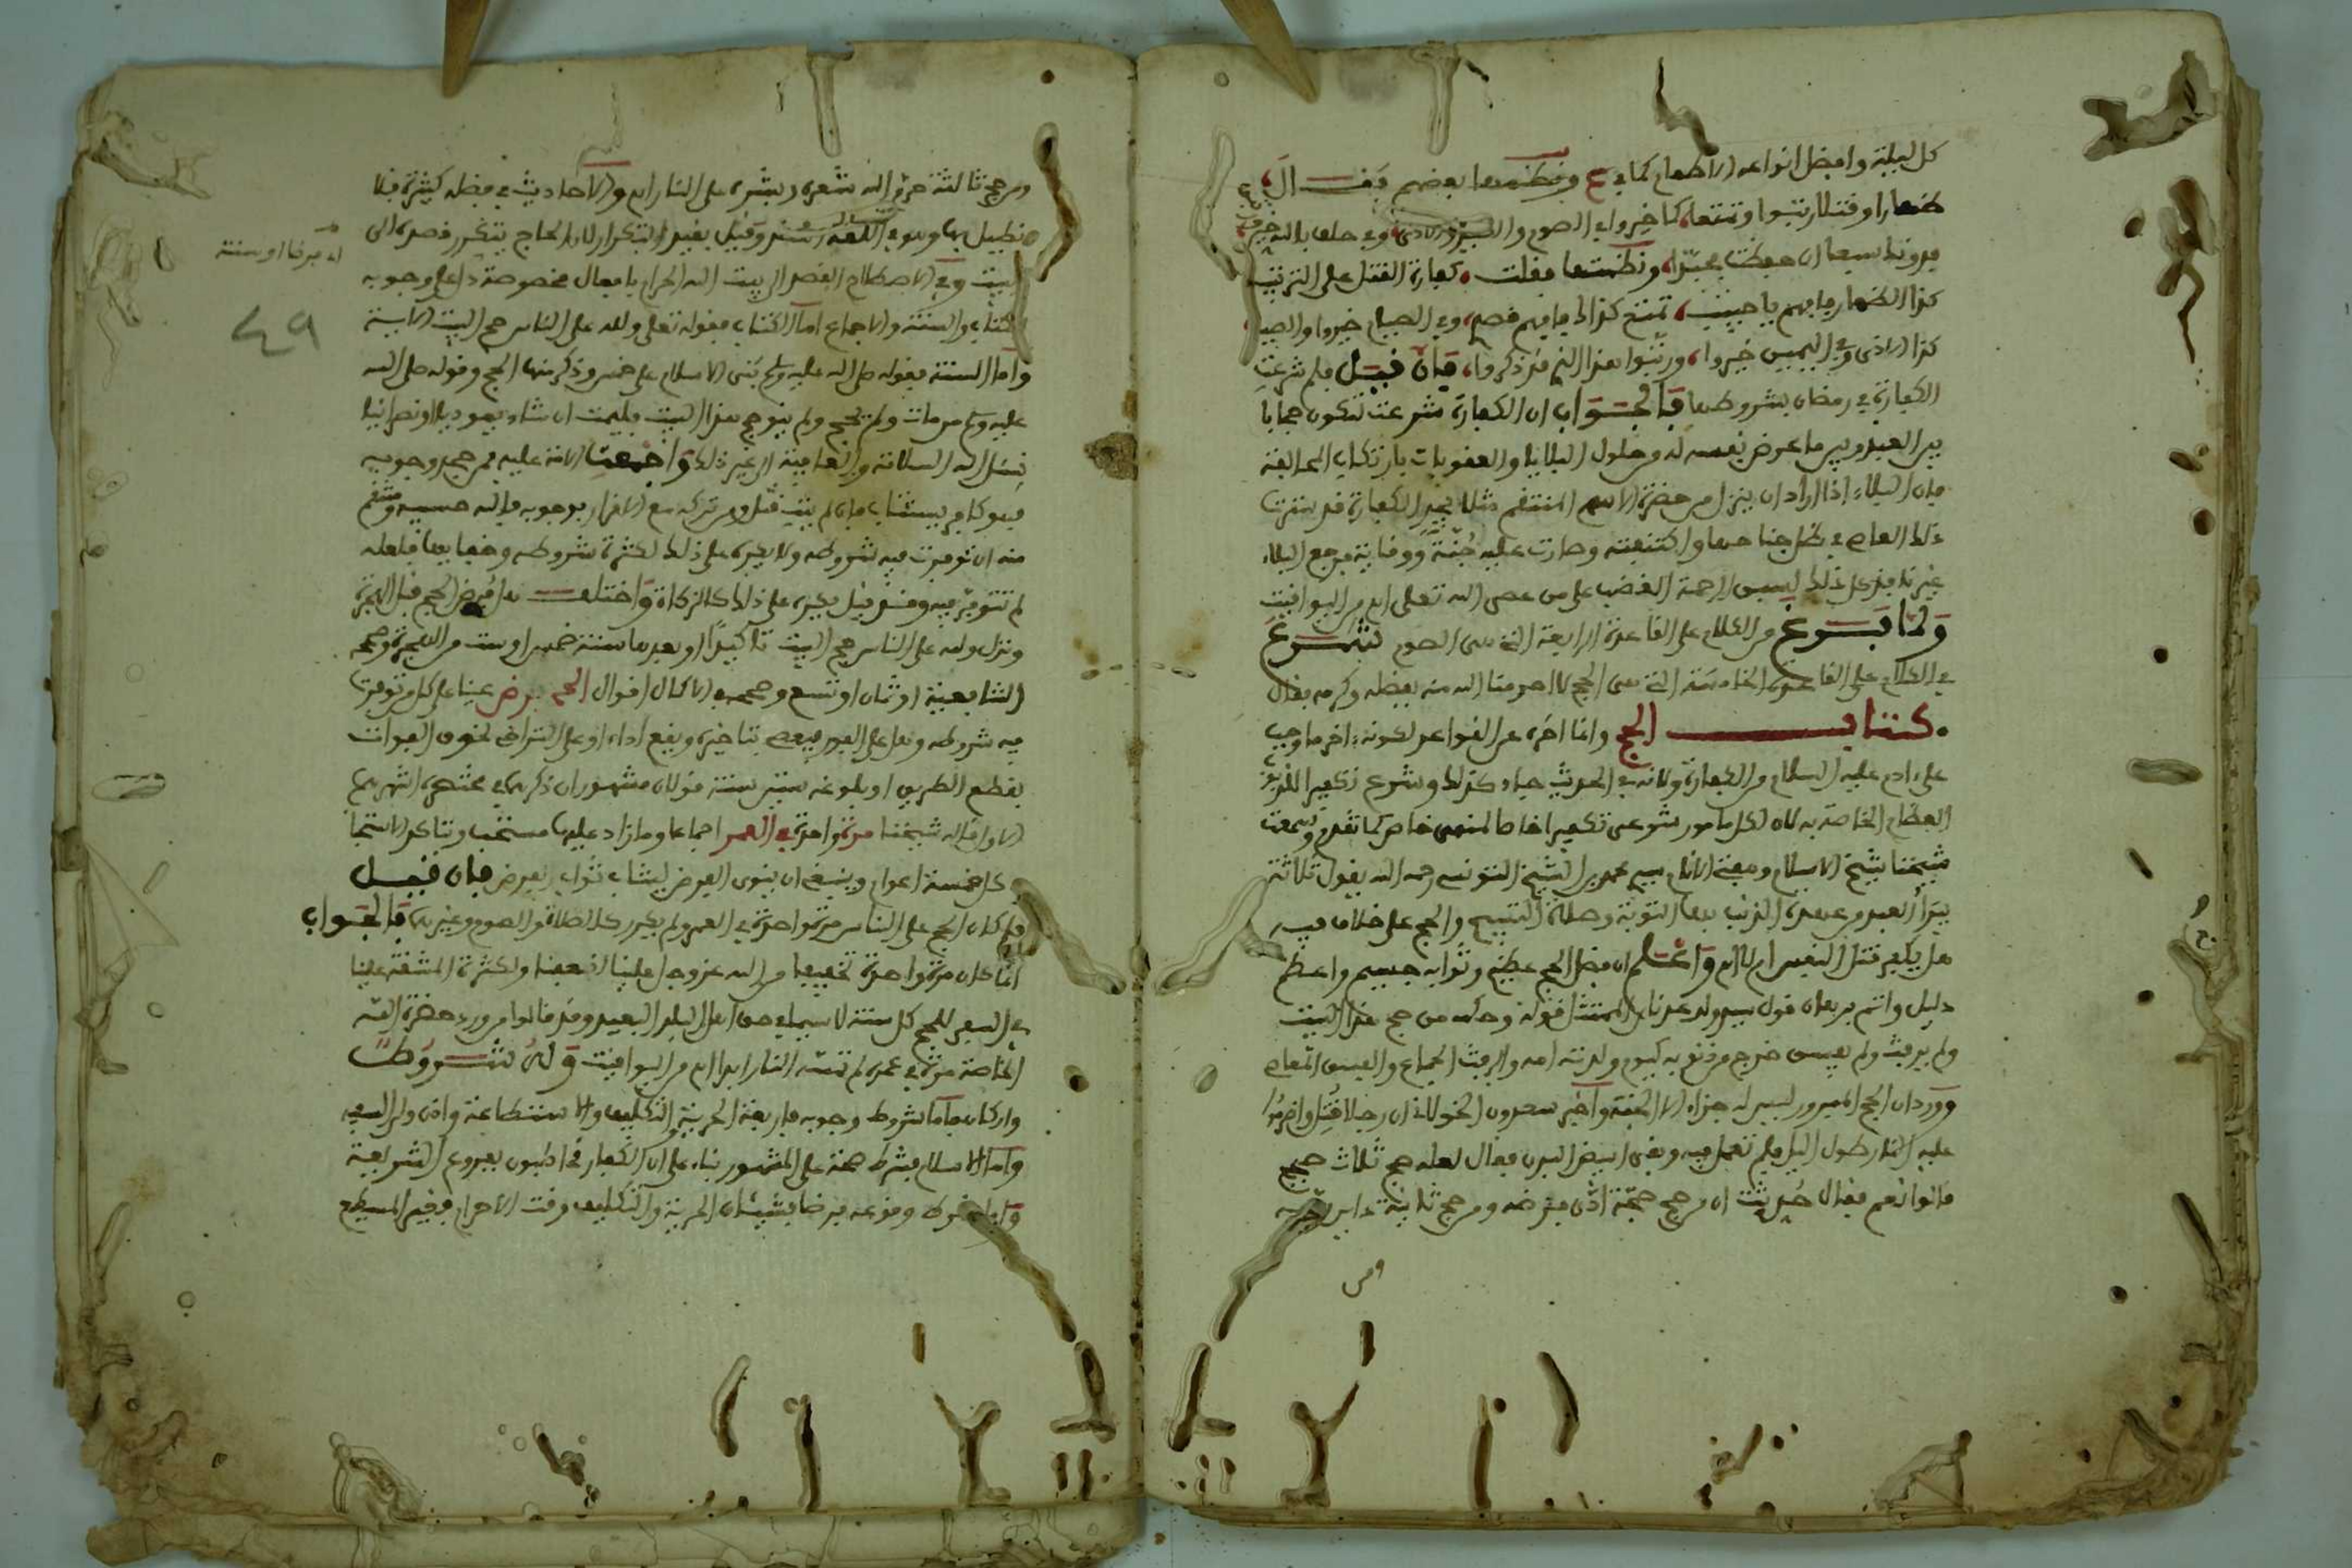 كل ليلة وافضل انواعه الاطعام كما في ونظمها بعضهم فقال
ظهارا وقتلا رتبوا وتمتعا كما خيروا في الصوم والصيد والاذى وفي حلف بالله خير
فدونك سبعا ان حفظت مجدا ونظمتها فقلت كفارة القتل على الترتيب
كذا الظهار يا حبيب تمتع كذاك وفي الصيام خيروا والصيد
كذا الاذى وفي اليمين خيروا ورتبوا هذا الذي قد ذكروا فان قيل فلم شرعت
الكفارة في رمضان بشروطها فالجواب ان الكفارة شرعت لتكون حجابا
بين العبد وبين ما عرض نفسه له من حلول البلايا والعقوبات بارتكاب المخالفة
فان البلاء اذا اراد ان ينزل من حضرة الاسم المنتقم مثلا يجد الكفارة قد سترت
ذلك العاصي في ظل جناحها واكتنفته وصارت عليه جنة ووقاية فيرجع البلاء
لسبق الرحمة الغضب على من عصى الله تعالى اهـ من اليواقيت
ولما فرغ من الكلام على القاعدة الرابعة التي هي الصوم شرع
في الكلام على القاعدة الخامسة التي هي الحج لا احرمنا الله منه بفضله وكرمه فقال
كتاب الحج وانما اخره عن القواعد لكونه اخر ما وجب
على ادم عليه السلام من الكفارة ولانه في الحديث جاء كذلك وشرع تكفير
العظام الخاصة به لان لكل مامور شرعي تكفيرا خاصا لمنهي خاص كما تقدم وسمعت
شيخنا شيخ الاسلام ومفتي الانام سيدي محمد بن الشيخ التونسي رحمه الله يقول ثلاثة
يبرأ العبد من عهدة الذنب بها التوبة وصلاة التسبيح والحج على خلاف فيه
هل يكفر قتل النفس ام لا اهـ واعلم ان فضل الحج عظيم وثوابه جسيم واعظم
دليل واتم برهان قول سيد ولد عدنان الممتثل قوله وحكمه من حج هذا البيت
ولم يرفث ولم يفسق خرج من ذنوبه كيوم ولدته امه والرفث الجماع والفسق المعاصي
وورد ان الحج المبرور ليس له جزاء الا الجنة واخبر سعدون الخولاني ان رجلا قتل واضرموا
عليه النار طول الليل فلم تعمل فيه وبقي ابيض البدن فقال لعله حج ثلاث حجج
قالوا نعم فقال حدثت ان من حج حجة ادى فرضه ومن حج ثانية داين ربه
ومن
ومن حج ثالثة حرم الله شعره وبشره على النار اهـ والاحاديث في فضله كثيرة فلا
نطيل بها وهو في اللغة القصد وقيل بقيد التكرار لان الحاج يتكرر قصده الى
البيت وفي الاصطلاح القصد الى بيت الله الحرام بافعال مخصوصة دل على وجوبه
الكتاب والسنة والاجماع اما الكتاب فقوله تعالى ولله على الناس حج البيت الاية
واما السنة فقوله صلى الله عليه وسلم بني الاسلام على خمس وذكر منها الحج وقوله صلى الله
عليه وسلم من مات ولم يحج ولم ينو حج هذا البيت فليمت ان شاء يهوديا او نصرانيا
نسئل الله السلامة والعافية الى غير ذلك واجمعت الامة عليه فمن جحد وجوبه
فهو كافر يستتاب فان لم يتب قتل ومن تركه مع الاقرار بوجوبه فالله حسيبه
منه ان توفرت فيه شروطه ولا يجبر على ذلك لكثرة شروطه وخفائها فلعله
لم تتوفر فيه وقيل يجبر على ذلك كالزكاة واختلف هل فرض الحج قبل الهجرة
ونزل ولله على الناس حج البيت تاكيدا او بعدها سنة خمس او ست من الهجرة وصححه
الشافعية او ثمان او تسع وصححه في الاكمال اقوال الحج فرض عينا على كل من توفرت
فيه شروطه وهل على الفور فيعصي بتاخيره ويقع اداء او على التراخي لخوف الفوات
بقطع الطريق او بلوغه ستين سنة قولان مشهوران ذكرهما في مختصره اشهرهما
الاول قاله شيخنا مرة واحدة في العمر اجماعا وما زاد عليها مستحب وتاكد الاستحباب
في كل خمسة اعوام وينبغي ان ينوي الفرض ليثاب ثواب الفرض فان قيل
لم كان الحج على الناس مرة واحدة في العمر ولم يكرر كالصلاة والصوم وغيرهما فالجواب
انما كان مرة واحدة تخفيفا من الله عز وجل علينا لضعفنا ولكثرة المشقة علينا
في السفر للحج كل سنة لا سيما في حق اهل البلد البعيد وقد قالوا من ورد حضرة الله
الخاصة مرة في عمره لم تمسه النار ابدا اهـ من اليواقيت وله شروط
واركان فاما شروط وجوبه فاربعة الحرية والتكليف والاستطاعة واذن ولي السفيه
واما الاسلام فشرط صحة على المشهور بناء على ان الكفار مخاطبون بفروع الشريعة
واما شروط وقوعه فرضا فشيئان الحرية والتكليف وقت الاحرام
٤٩